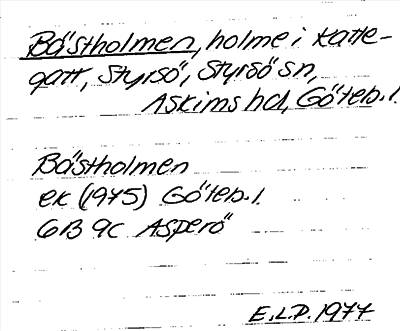 Båstholmen, holme i Katte-
gatt, Styrsö, Styrsö sn,
Askims hd, Göteb. l.
Båstholmen
ek (1975) Göteb. l.
6B 9c Asperö
E.L.P. 1977